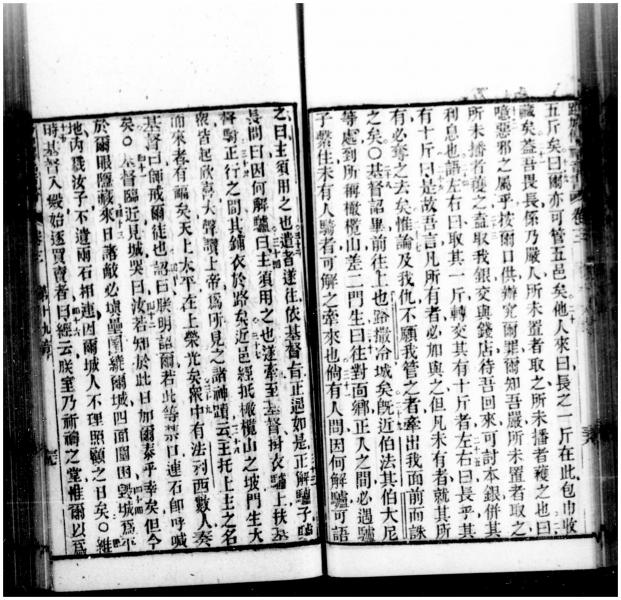 五斤矣曰爾亦可管五邑矣他人來曰長之一斤在此包巾收
藏矣葢吾畏長係乃嚴人所未置者取之所未播者穫之也曰
噫惡邪之屬乎按爾口供辦究爾罪爾知吾嚴所未置者取之
所未播者穫之葢取我銀交與錢店待吾回來可討本銀併其
利息也語左右曰取其一斤轉交其有十斤者左右曰長乎其
有十斤曰是故吾言凡所有者必加與之但凡未有者就其所
有必奪之去矣惟論及我仇不願我管之者牽出我面前而誅
之矣○基督詔畢前往上也路撒冷城矣旣近伯法其伯大尼
等處到所稱橄欖山差二門生曰往對面鄉正人之間必遇驢
子繫住未有人騎者可解之牽來也倘有人間因何解驢可語
之曰主須用之也遣者遂往依基督言正遇如是正解驢子
長問曰因何解驢曰主須用之也遂牽至基督拊衣驢上扶基
督騎正行之間其鋪衣於路矣近邑經抵橄欖山之坡門生大
衆皆起欣喜大聲讚上帝爲所見之諸神蹟云王托上主之名
而來者有福矣天上太平在上榮光矣衆中有法利西數人奏
基督曰師戒爾徒也認曰朕明認爾若此等禁口連石卽呼喊
矣○基督臨近見城哭曰汝若知於此日加爾泰乎幸矣但今
於爾眼隱藏來日諸敵必填壘圍繞爾城四面闔困毀城爲平
地內戮汝子不遺兩石相連因爾城人不理照顧之日矣○維
時基督入殿始逐買賣者曰經云朕室乃祈禱之堂惟爾以爲
卷三
第十九章